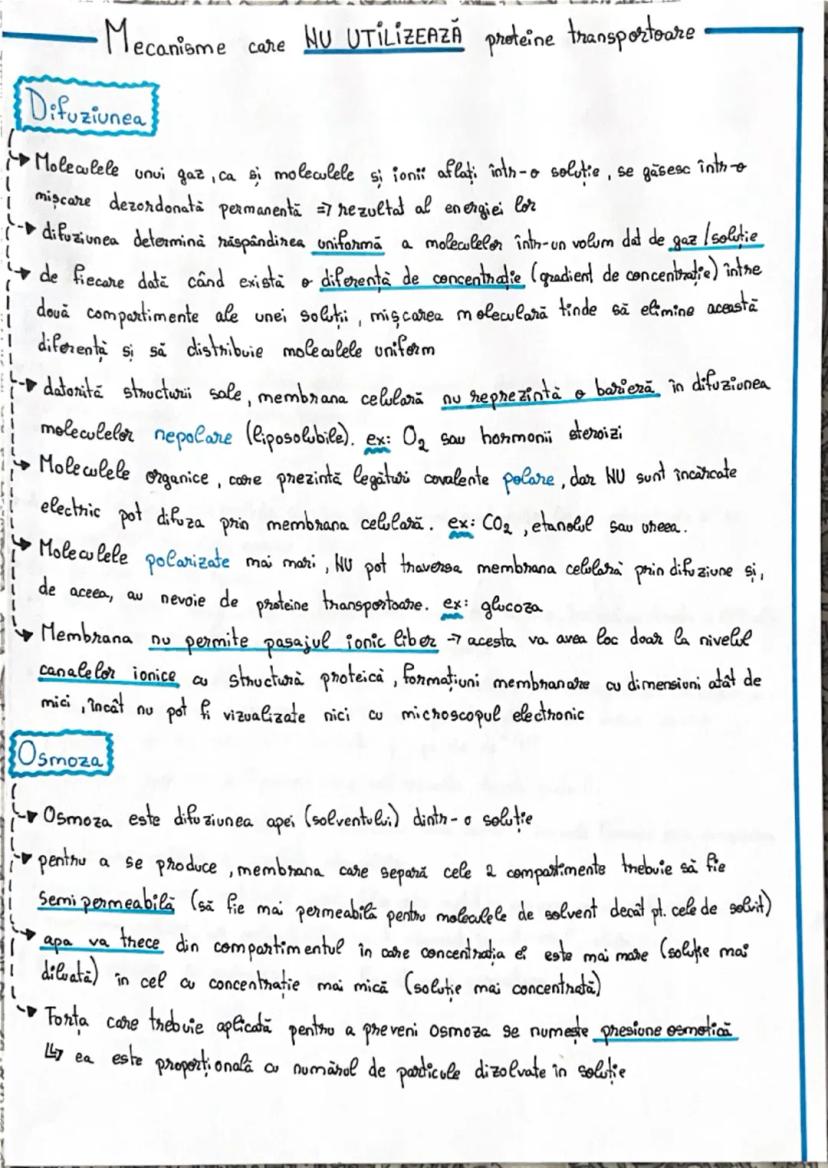 Mecanisme care NU UTILIZEAZĂ proteine transportoare
Difuziunea
Moleculele unui gaz, ca și moleculele și ionii aflați într-o soluție, se găsesc într-o
mișcare dezordonată permanentă => rezultat al energiei lor
difuziunea determină răspândirea uniformă a moleculelor într-un volum dat de gaz/soluție
de fiecare dată când există o diferență de concentrație (gradient de concentrație) între
două compartimente ale unei soluții, mișcarea moleculară tinde să elimine această
diferență și să distribuie moleculele uniform
datorită structurii sale, membrana celulară nu reprezintă o barieră în difuziunea
moleculelor nepolare (liposolubile). ex: O₂ sau hormonii steroizi
Moleculele organice, care prezintă legături covalente polare, dar NU sunt încărcate
electric pot difuza prin membrana celulară. ex: CO₂, etanolul sau ureea.
Moleculele polarizate mai mari, NU pot traversa membrana celulară prin difuziune și,
de aceea, au nevoie de proteine transportoare. ex: glucoza
Membrana nu permite pasajul ionic liber → acesta va avea loc doar la nivelul
canalelor ionice cu structură proteică, formațiuni membranare cu dimensiuni atât de
mici, încât nu pot fi vizualizate nici cu microscopul electronic
Osmoza
Osmoza este difuziunea apei (solventului) dintr-o soluție
pentru a se produce, membrana care separă cele 2 compartimente trebuie să fie
semipermeabilă (să fie mai permeabilă pentru moleculele de solvent decât pt. cele de solvit)
apa va trece din compartimentul în care concentrația ei este mai mare (soluție mai
diluată) în cel cu concentrație mai mică (soluție mai concentrată)
Forța care trebuie aplicată pentru a preveni osmoza se numește presiune osmotică
↳ ea este proporțională cu numărul de particule dizolvate în soluție